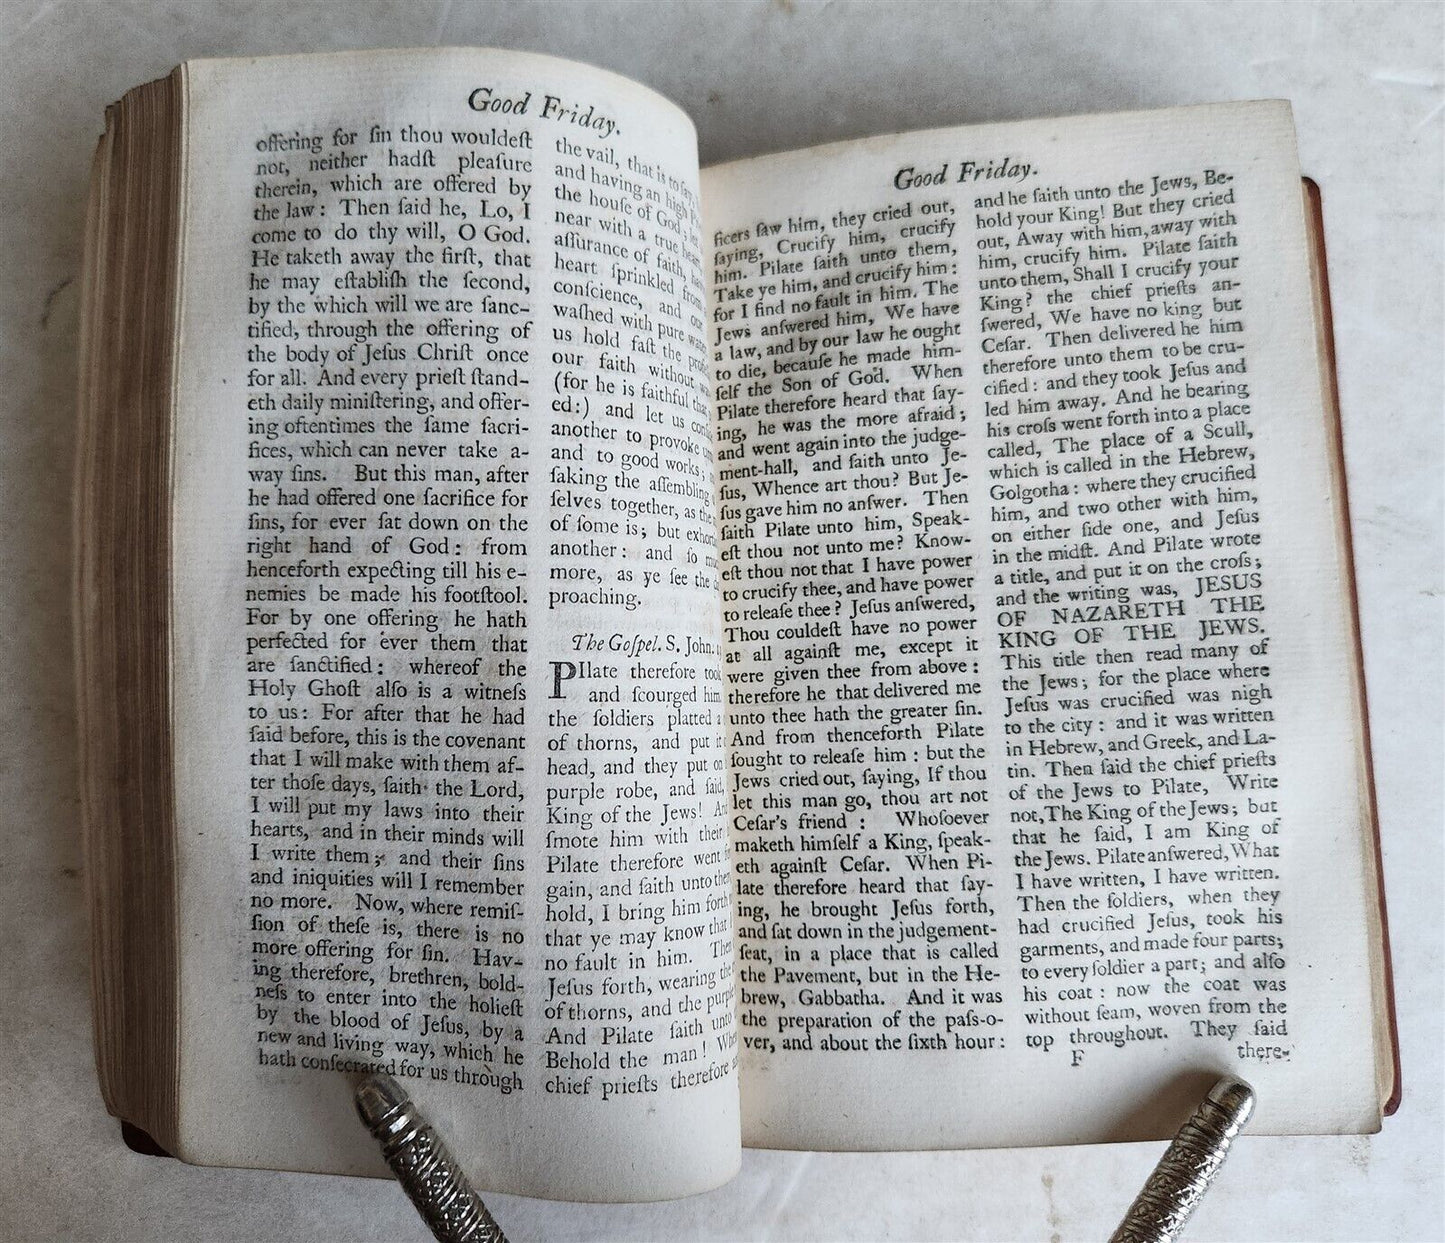 Good Friday.
offering for ſin thou wouldeſt
not, neither hadſt pleaſure
therein, which are offered by
the law: Then ſaid he, Lo, I
come to do thy will, O God.
He taketh away the firſt, that
he may eſtabliſh the ſecond,
by the which will we are ſanc-
tified, through the offering of
the body of Jeſus Chriſt once
for all. And every prieſt ſtand-
eth daily miniſtering, and offer-
ing oftentimes the ſame ſacri-
fices, which can never take a-
way ſins. But this man, after
he had offered one ſacrifice for
ſins, for ever ſat down on the
right hand of God: from
henceforth expecting till his e-
nemies be made his footſtool.
For by one offering he hath
perfected for ever them that
are ſanctified: whereof the
Holy Ghoſt alſo is a witneſs
to us: For after that he had
ſaid before, this is the covenant
that I will make with them af-
ter thoſe days, ſaith the Lord,
I will put my laws into their
hearts, and in their minds will
I write them; and their ſins
and iniquities will I remember
no more. Now, where remiſ-
ſion of theſe is, there is no
more offering for ſin. Hav-
ing therefore, brethren, bold-
neſs to enter into the holieſt
by the blood of Jeſus, by a
new and living way, which he
hath conſecrated for us through
the vail, that is to ſay,
and having an high
the houſe of God; let
near with a true heart
aſſurance of faith,
heart ſprinkled from
conſcience, and our
waſhed with pure water
us hold faſt the
our faith without
(for he is faithful that
ed:) and let us
another to provoke
and to good works;
ſaking the aſſembling
ſelves together, as the
of ſome is; but
another: and ſo
more, as ye ſee the
proaching.
The Goſpel. S. John.
PIlate therefore took
and ſcourged him
the ſoldiers platted a
of thorns, and put it
head, and they put on
purple robe, and ſaid,
King of the Jews!
ſmote him with their
Pilate therefore went
gain, and ſaith unto them
hold, I bring him forth
that ye may know that
no fault in him. Then
Jeſus forth, wearing the
of thorns, and the purple
And Pilate ſaith unto
Behold the man! When
chief prieſts therefore
Good Friday.
ficers ſaw him, they cried out,
ſaying, Crucify him, crucify
him. Pilate ſaith unto them,
Take ye him, and crucify him:
for I find no fault in him. The
Jews anſwered him, We have
a law, and by our law he ought
to die, becauſe he made him-
ſelf the Son of God. When
Pilate therefore heard that ſay-
ing, he was the more afraid;
and went again into the judge-
ment-hall, and ſaith unto Je-
ſus, Whence art thou? But Je-
ſus gave him no anſwer. Then
ſaith Pilate unto him, Speak-
eſt thou not unto me? Know-
eſt thou not that I have power
to crucify thee, and have power
to releaſe thee? Jeſus anſwered,
Thou couldeſt have no power
at all againſt me, except it
were given thee from above:
therefore he that delivered me
unto thee hath the greater ſin.
And from thenceforth Pilate
ſought to releaſe him: but the
Jews cried out, ſaying, If thou
let this man go, thou art not
Ceſar's friend: Whoſoever
maketh himſelf a King, ſpeak-
eth againſt Ceſar. When Pi-
late therefore heard that ſay-
ing, he brought Jeſus forth,
and ſat down in the judgement-
ſeat, in a place that is called
the Pavement, but in the He-
brew, Gabbatha. And it was
the preparation of the paſs-o-
ver, and about the ſixth hour:
and he ſaith unto the Jews, Be-
hold your King! But they cried
out, Away with him, away with
him, crucify him. Pilate ſaith
unto them, Shall I crucify your
King? the chief prieſts an-
ſwered, We have no king but
Ceſar. Then delivered he him
therefore unto them to be cru-
cified: and they took Jeſus and
led him away. And he bearing
his croſs went forth into a place
called, The place of a Scull,
which is called in the Hebrew,
Golgotha: where they crucified
him, and two other with him,
on either ſide one, and Jeſus
in the midſt. And Pilate wrote
a title, and put it on the croſs;
and the writing was, JESUS
OF NAZARETH THE
KING OF THE JEWS.
This title then read many of
the Jews; for the place where
Jeſus was crucified was nigh
to the city: and it was written
in Hebrew, and Greek, and La-
tin. Then ſaid the chief prieſts
of the Jews to Pilate, Write
not, The King of the Jews; but
that he ſaid, I am King of
the Jews. Pilate anſwered, What
I have written, I have written.
Then the ſoldiers, when they
had crucified Jeſus, took his
garments, and made four parts;
to every ſoldier a part; and alſo
his coat: now the coat was
without ſeam, woven from the
top throughout. They ſaid
F
there-